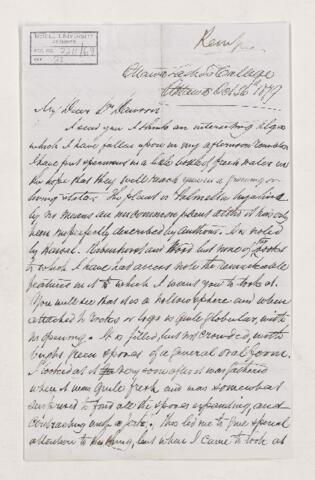 McGILL UNIVERSITY
ARCHIVES
ACC. NO. 2211/69
REF. 23
Ottawa Ladies College
Ottawa Oct 16 1877
My Dear Dr Dawson
I send you I think an interesting Alga
which I have fallen upon in my afternoon rambles
I have put specimens in a little bottle of fresh water in
the hope that they will reach you in a growing or
living state. The plant is Palmella
by no means an uncommon plant altho it has only
been imperfectly described by authors. It is noted
by Hassall Rabenhorst and Wood but none of the books
to which I have had access note the remarkable
features in it to which I want you to look at.
You will see that it is a hollow sphere and when
attached to rocks or logs is quite globular, with
no opening. It is filled, but not crowded, with
bright green spores of a general oval form.
I looked at it very soon after it was gathered
when it was quite fresh and was somewhat
surprised to find all the spores expanding, and
contracting This led me to give special
attention to but when I came to look at